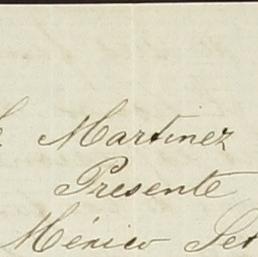 Martinez
Presente
México Set